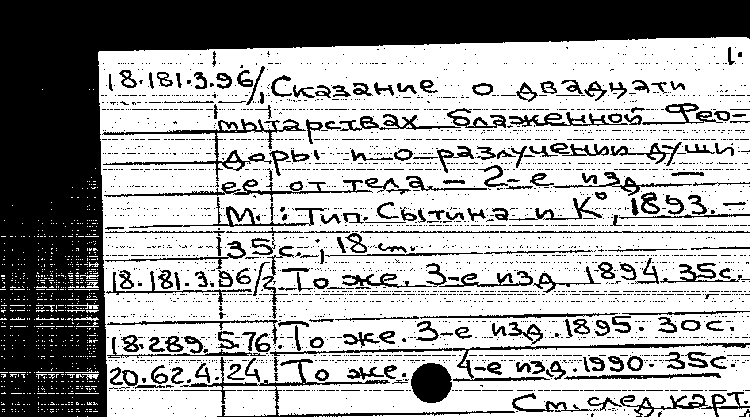 1.
18.181.3.96/1 Сказание о двадцати
мытарствах блаженной Фео-
доры и о разлучении души
ее от тела. – 2-е изд. –
М.: Тип. Сытина и К°, 1893. –
35 с.; 18 см.
18.181.3.96/2 То же. 3-е изд. 1894. 35с.
18.289.5.76. То же. 3-е изд. 1895. 30с.
20.62.4.24. То же. 4-е изд. 1990. 35с.
См. след. карт.